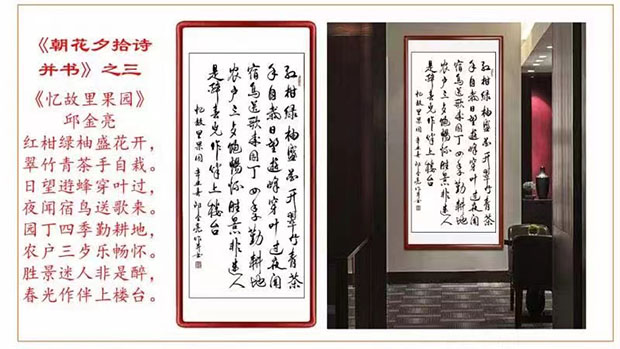 《朝花夕拾诗
并书》之三
《忆故里果园》
邱金亮
红柑绿柚盛花开，
翠竹青茶手自栽。
日望遊蜂穿叶过，
夜闻宿鸟送歌来。
园丁四季勤耕地，
农户三歺乐畅怀。
胜景迷人非是醉，
春光作伴上楼台。
红柑绿柚盛花开翠竹青茶
手自栽日望遊蜂穿叶过夜闻
宿鸟送歌来园丁四季勤耕地
农户三歺饱畅怀胜景非迷人
是醉春光作伴上楼台
忆故里果园 辛丑 邱金亮作并书
红柑绿柚盛花开翠竹青茶
手自栽日望遊蜂穿叶过夜闻
宿鸟送歌来园丁四季勤耕地
农户三歺饱畅怀胜景非迷人
是醉春光作伴上楼台
忆故里果园 辛丑 邱金亮作并书